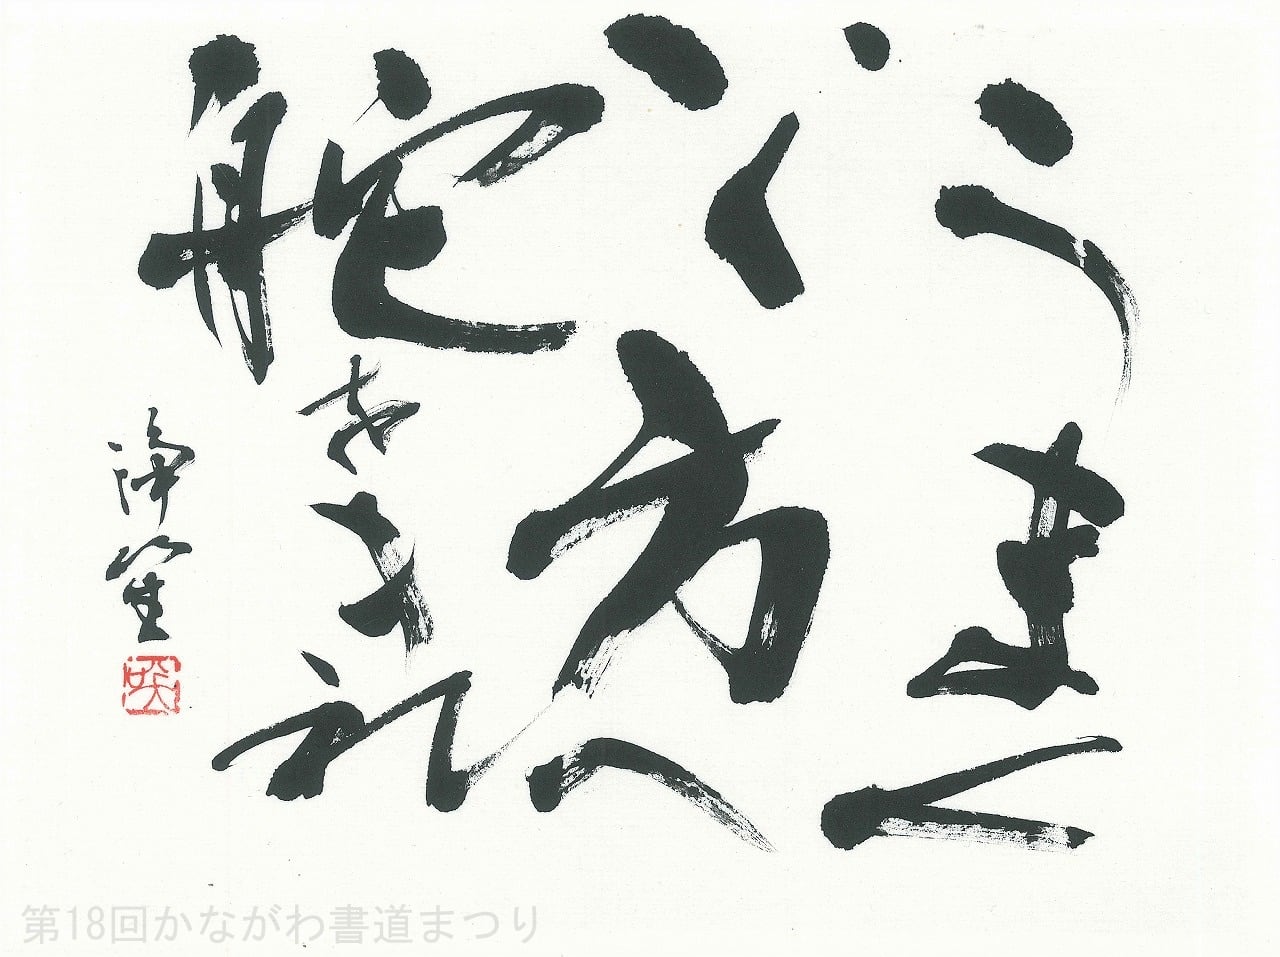 うまく
いく方へ
舵をきれ
第18回かながわ書道まつり